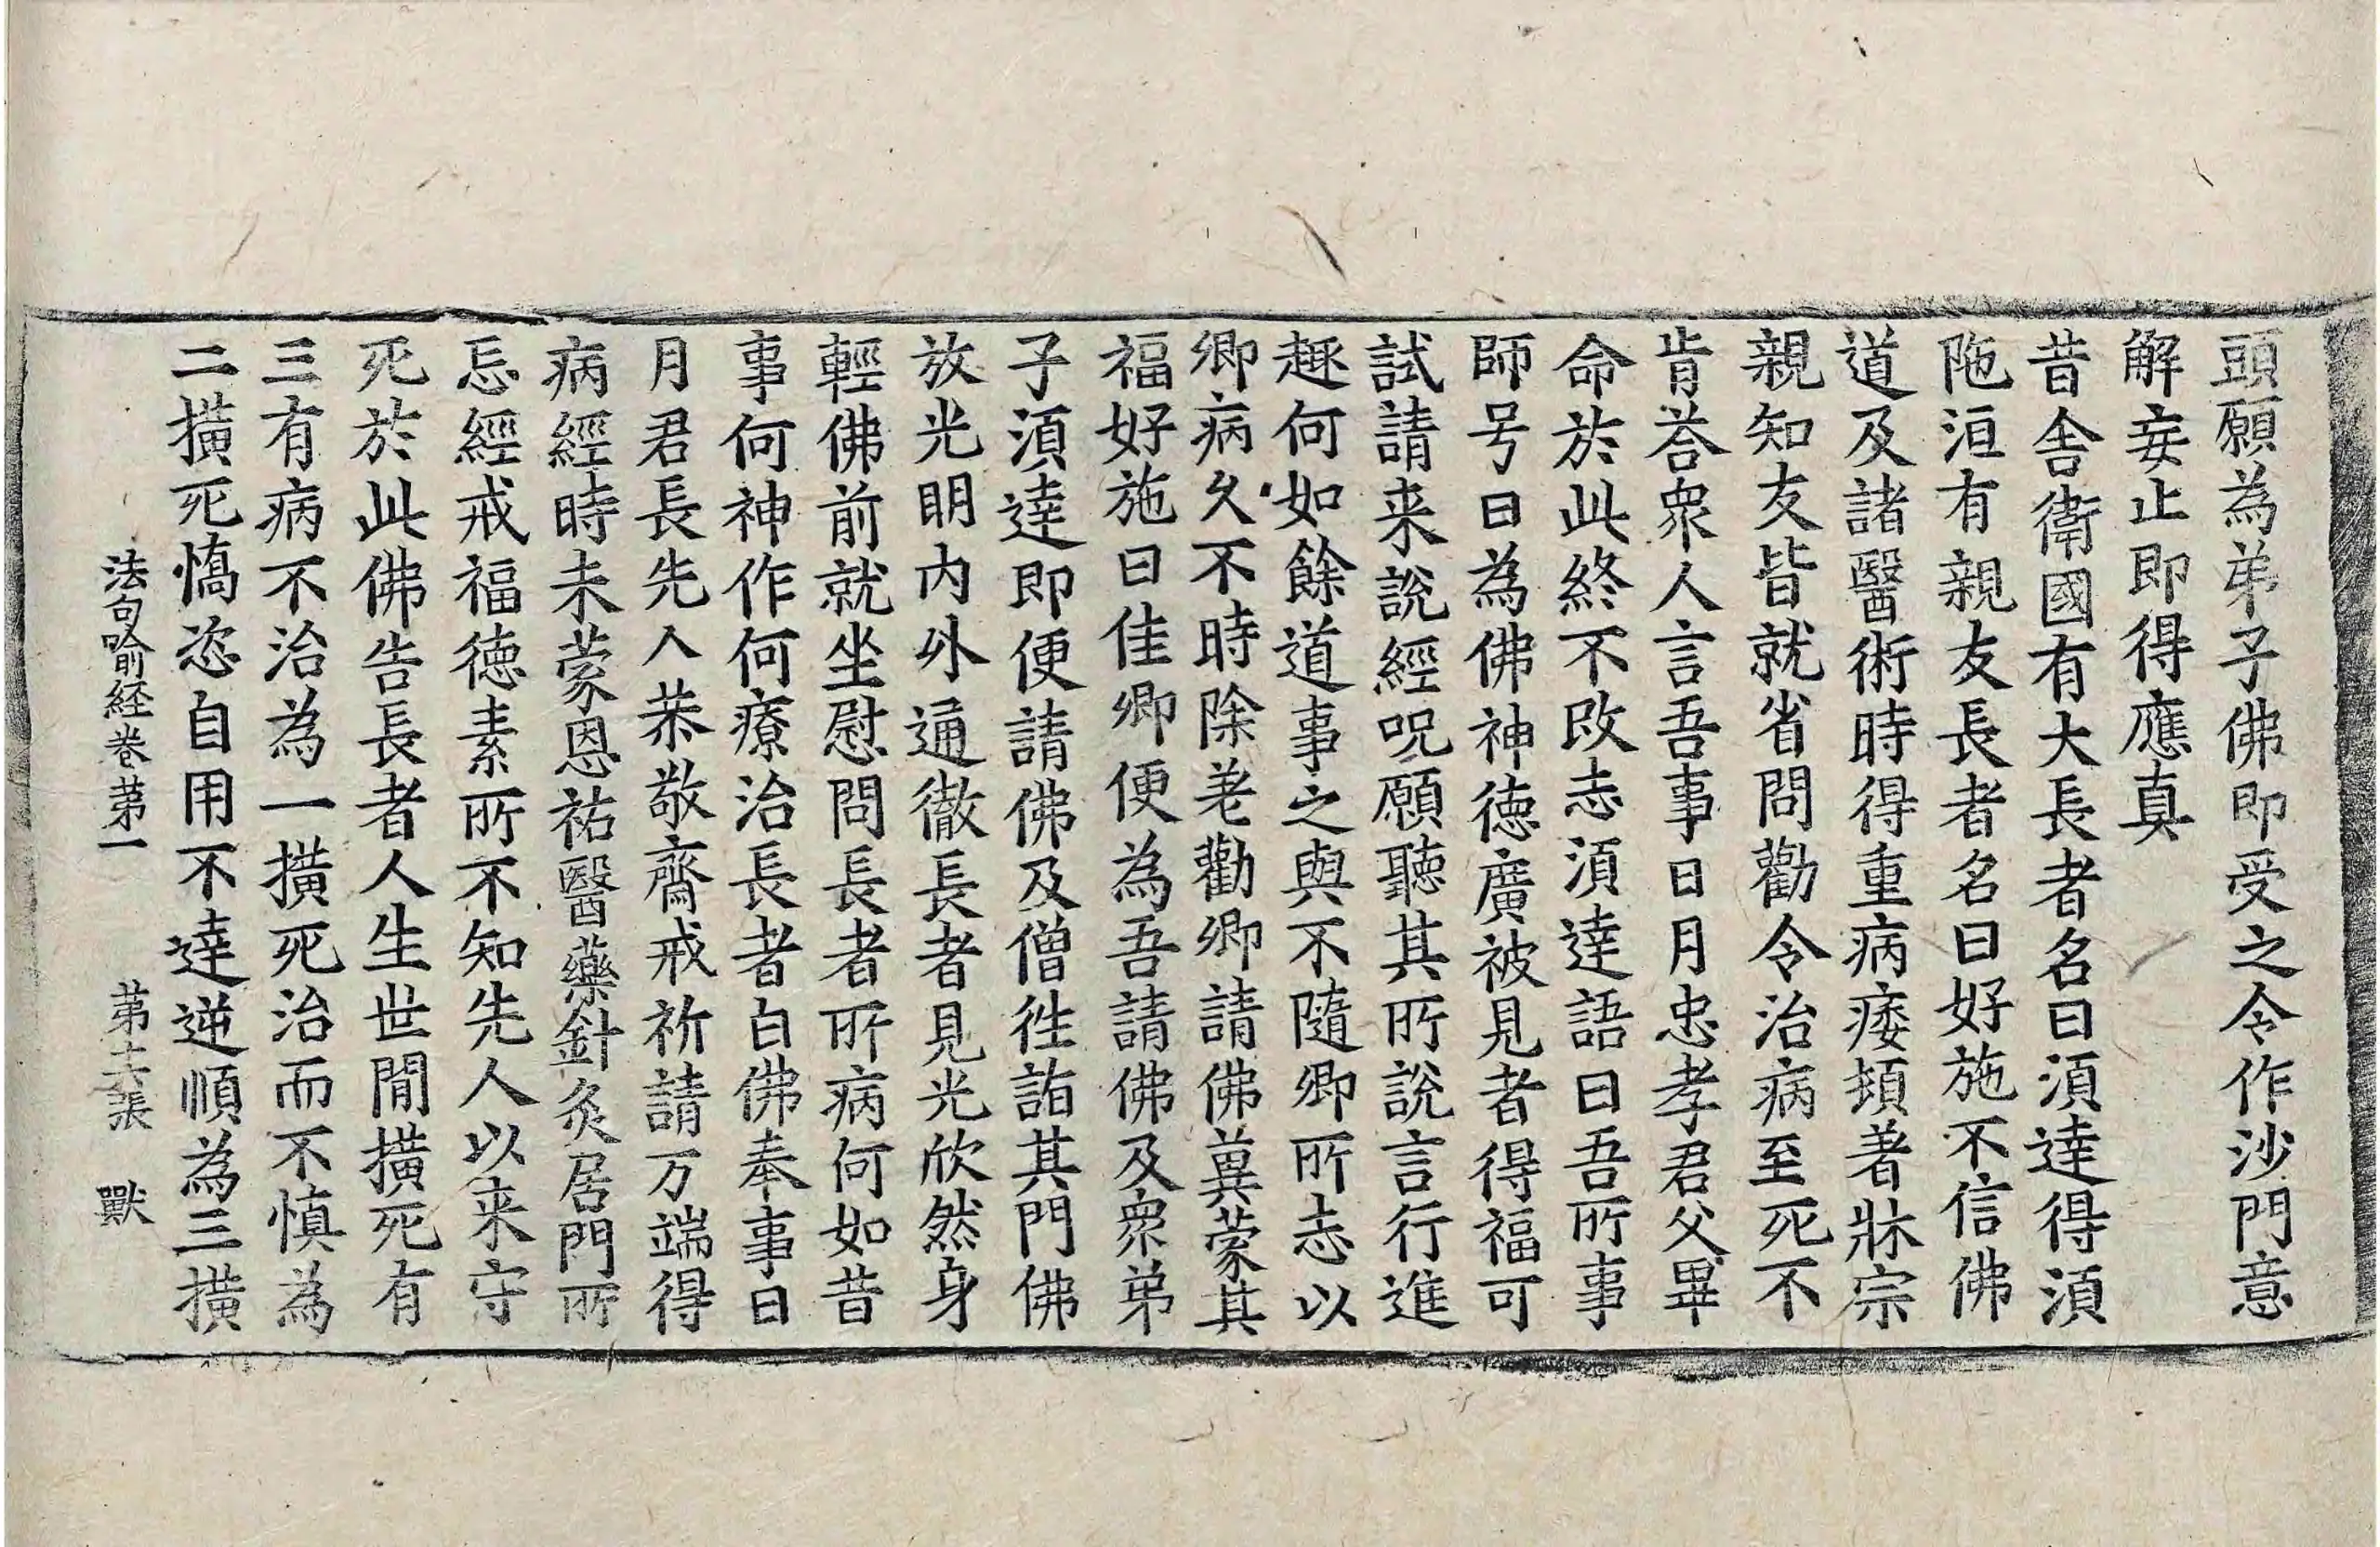 頭願為弟子佛即受之令作沙門意
解妄止即得應真
昔舍衛國有大長者名曰湏達得湏
陁洹有親友長者名曰好施不信佛
道及諸醫術時得重病痿頓著牀宗
親知友皆就省問勸令治病至死不
肯荅衆人言吾事日月忠孝君父畢
命於此終不改志湏達語曰吾所事
師号曰為佛神德廣被見者得福可
試請来說經呪願聽其所說言行進
趣何如餘道事之與不隨卿所志以
卿病久不時除差勸卿請佛冀蒙其
福好施曰佳卿便為吾請佛及衆弟
子湏達即便請佛及僧徃詣其門佛
放光明内外通徹長者見光欣然身
輕佛前就坐慰問長者所病何如昔
事何神作何療治長者白佛奉事日
月君長先人恭敬齋戒祈請万端得
病經時未蒙恩祐醫藥針灸居門所
忌經戒福德素所不知先人以来守
死於此佛告長者人生世間撗死有
三有病不治為一撗死治而不慎為
二撗死憍恣自用不達逆順為三撗
法句喻経卷第一 第六張 獸